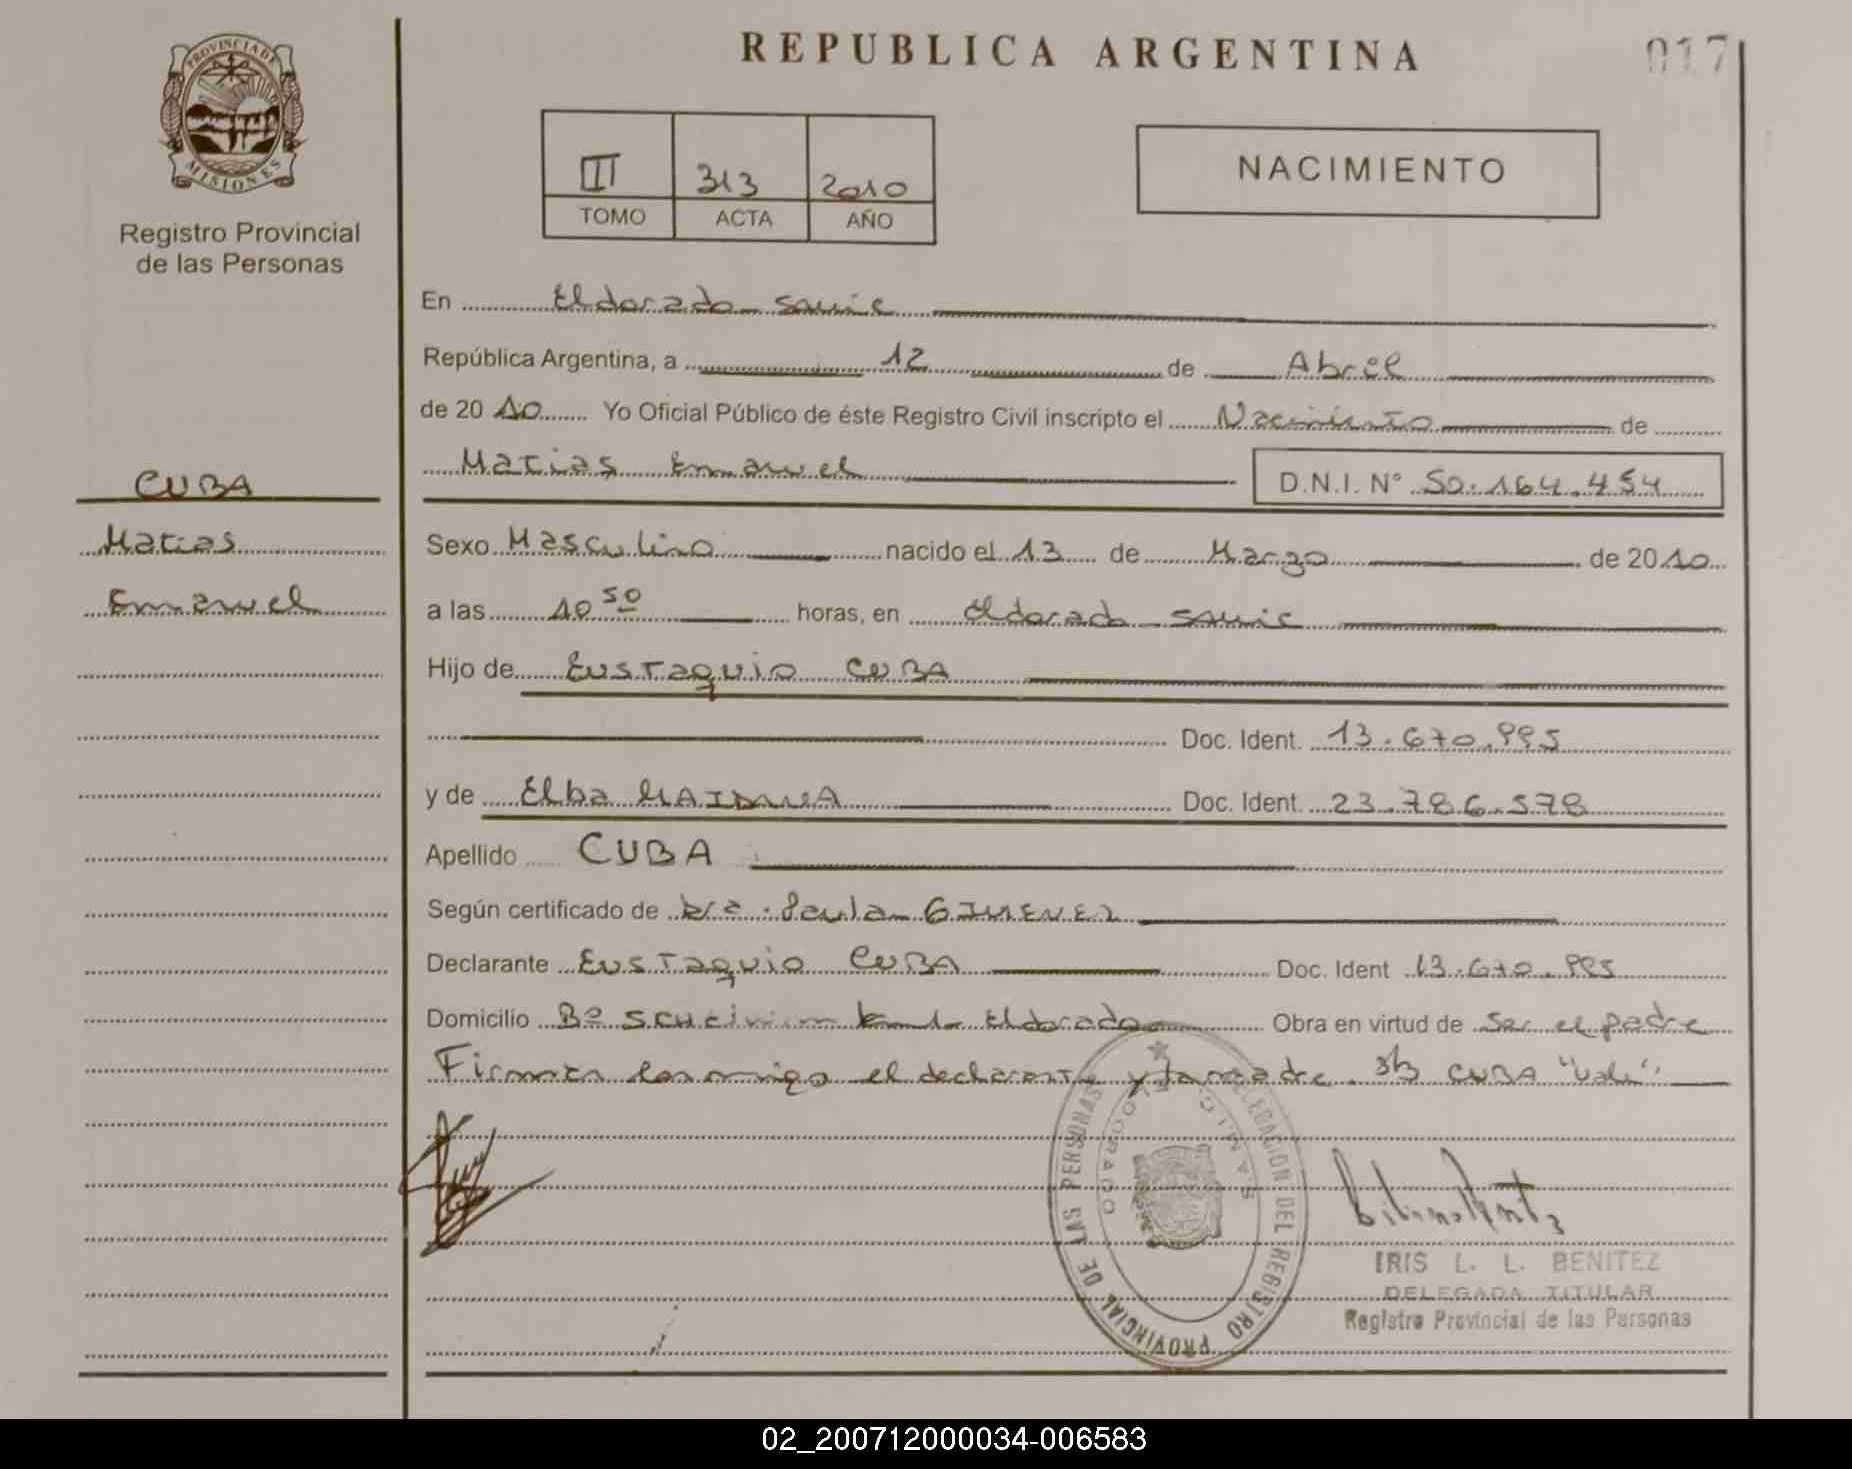 REPUBLICA ARGENTINA
017
PROVINCIA DE MISIONES
Registro Provincial
de las Personas
III 313 2010
TOMO ACTA AÑO
NACIMIENTO
En Eldorado - SAMIC
República Argentina, a 12 de Abril
de 20 10 Yo Oficial Público de éste Registro Civil inscripto el Nacimiento de
Matias Emanuel
D.N.I. N° 50.164.454
CUBA
Matias
Emanuel
Sexo Masculino nacido el 13 de Marzo de 2010
a las 10 50 horas, en Eldorado - SAMIC
Hijo de Eustaquio CUBA
Doc. Ident. 13.670.995
y de Elba Doc. Ident. 23.786.578
Apellido CUBA
Según certificado de Paula GIMENEZ
Declarante Eustaquio CUBA Doc. Ident 13.670.995
Domicilio Bº Eldorado Obra en virtud de Ser el padre
Firman conmigo el declarante y la madre. S/b CUBA "Vale"
DELEGACION DEL REGISTRO PROVINCIAL DE LAS PERSONAS
S.A.M.I.C. ELDORADO
IRIS L. L. BENITEZ
DELEGADA TITULAR
Registro Provincial de las Personas
02_200712000034-006583